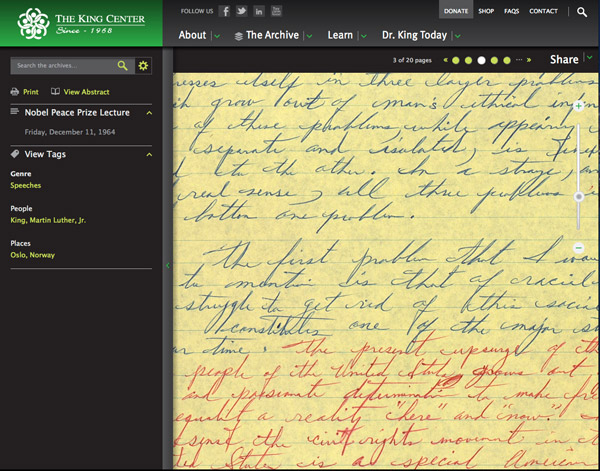 THE KING CENTER
Since - 1968
FOLLOW US
DONATE SHOP FAQS CONTACT
About The Archive Learn Dr. King Today
3 of 20 pages « ... »
Share
Search the archives...
Print View Abstract
Nobel Peace Prize Lecture
Friday, December 11, 1964
View Tags
Genre
Speeches
People
King, Martin Luther, Jr.
Places
Oslo, Norway
resses itself in three larger problems
grow out of man's ethical
of these problems, while appearing
separate and isolated, is
to the other. In a strange, an
real sense, all three problems
bottom one problem.
The first problem that I wou
to mention is that of racial
struggle to get rid of this social
constitutes one of the major
ur time. The present upsurge of th
people of the United States, grows out
and passionate determination to make fre
equality a reality "here" and "now".
sense the civil rights movement in
ted States is a special American